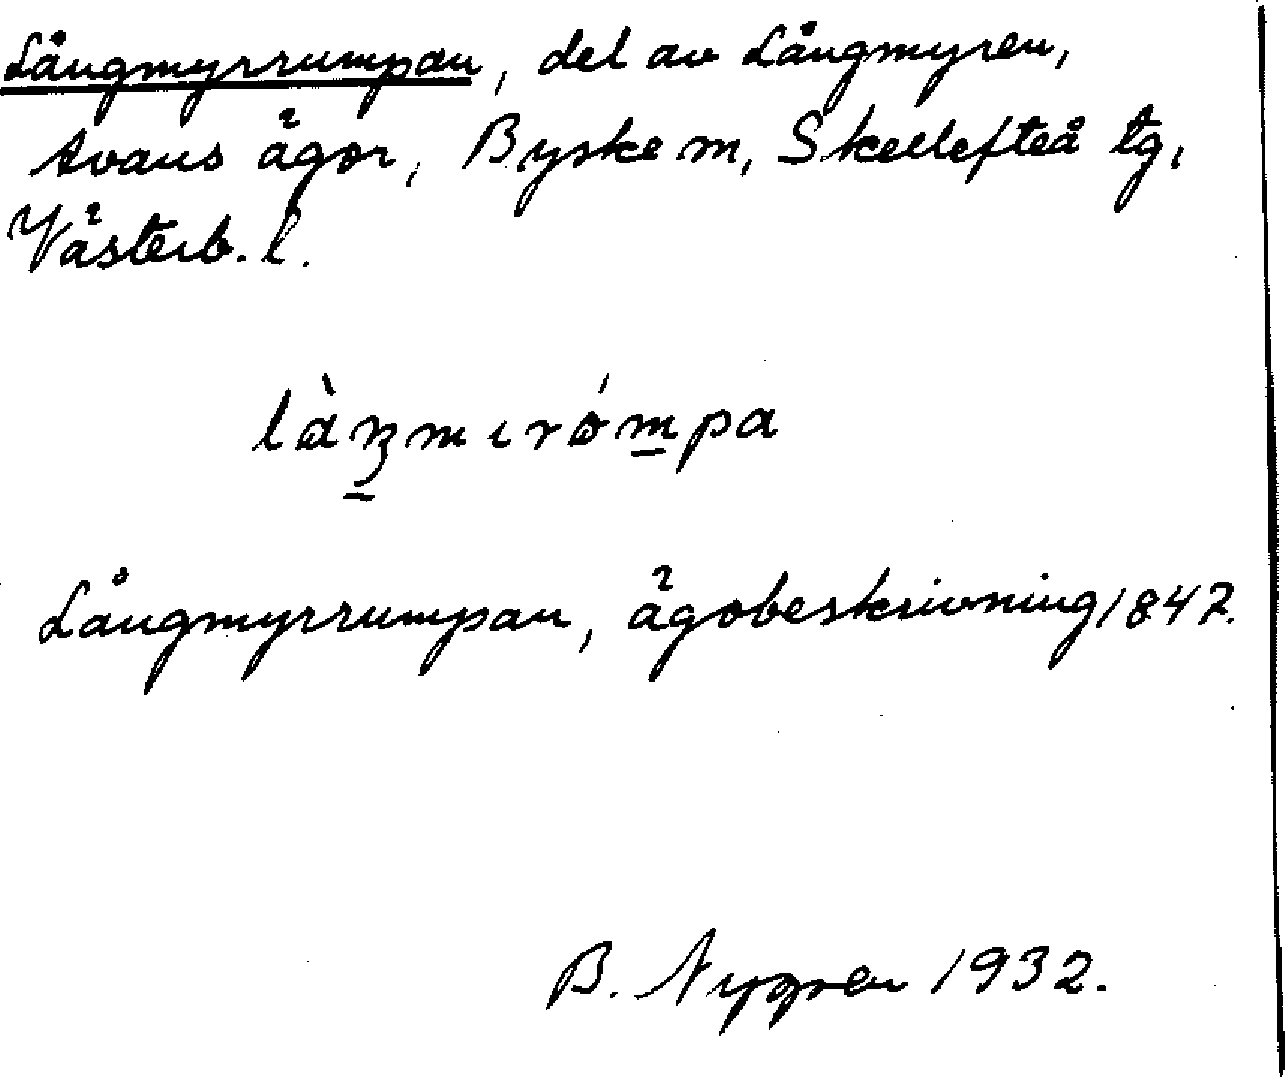 Långmyrrumpan, del av Långmyren,
Avans ägor, Byske m, Skellefteå tg,
Västerb. l.
làŋmırómpa
Långmyrrumpan, ägobeskrivning 1847.
B. Nygren 1932.